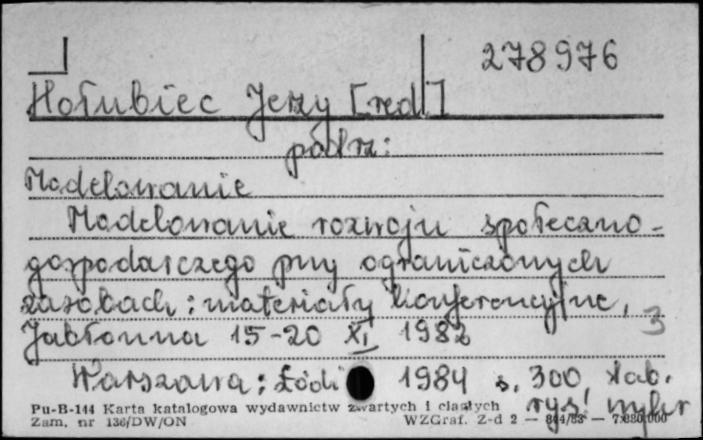 278976
Hołubiec Jerzy [red.]
patrz:
Modelowanie
Modelowanie rozwoju społeczno-
gospodarczego przy ograniczonych
zasobach : materiały konferencyjne,
Jabłonna 15-20 XI 1982 3
Warszawa ; Łódź 1984 s. 300, tab.
rys. wykr
Pu-B-144 Karta katalogowa wydawnictw zwartych i ciągłych
Zam. nr 136/DW/ON WZGraf. Z-d 2 — 844/83 — 7.880.000